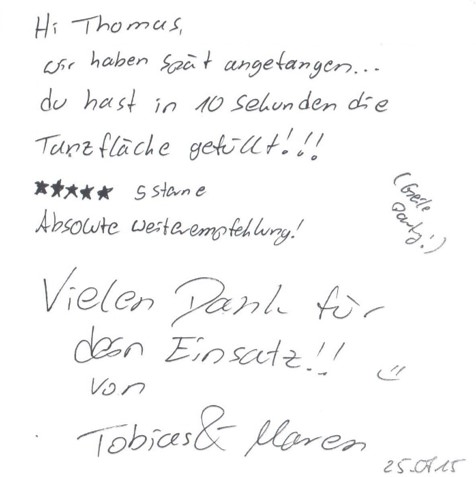 Hi Thomas,
wir haben spät angefangen...
du hast in 10 Sekunden die
Tanzfläche gefüllt!!!
★★★★★ 5 Sterne
Absolute Weiterempfehlung!
(Geile
Party!)
Vielen Dank für
den Einsatz!!
von
Tobias & Maren
25.07.15